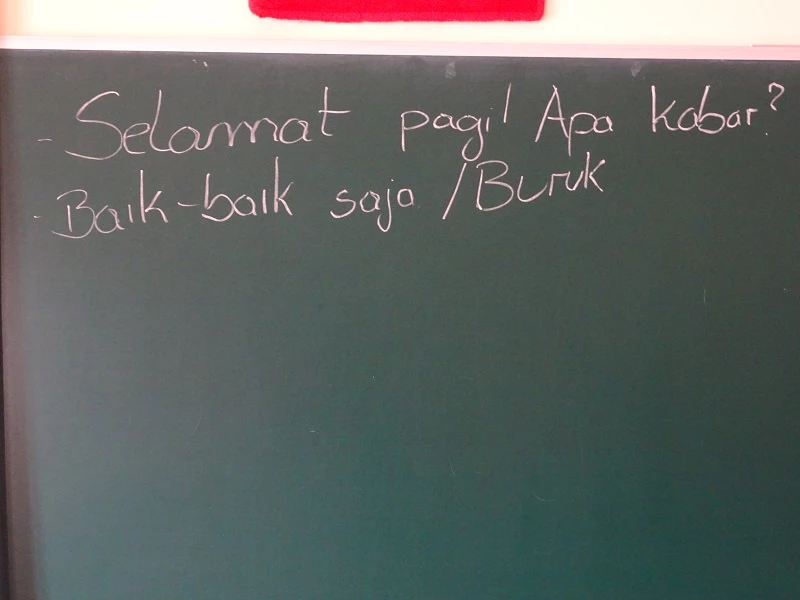 - Selamat pagi! Apa kabar?
- Baik-baik saja / Buruk